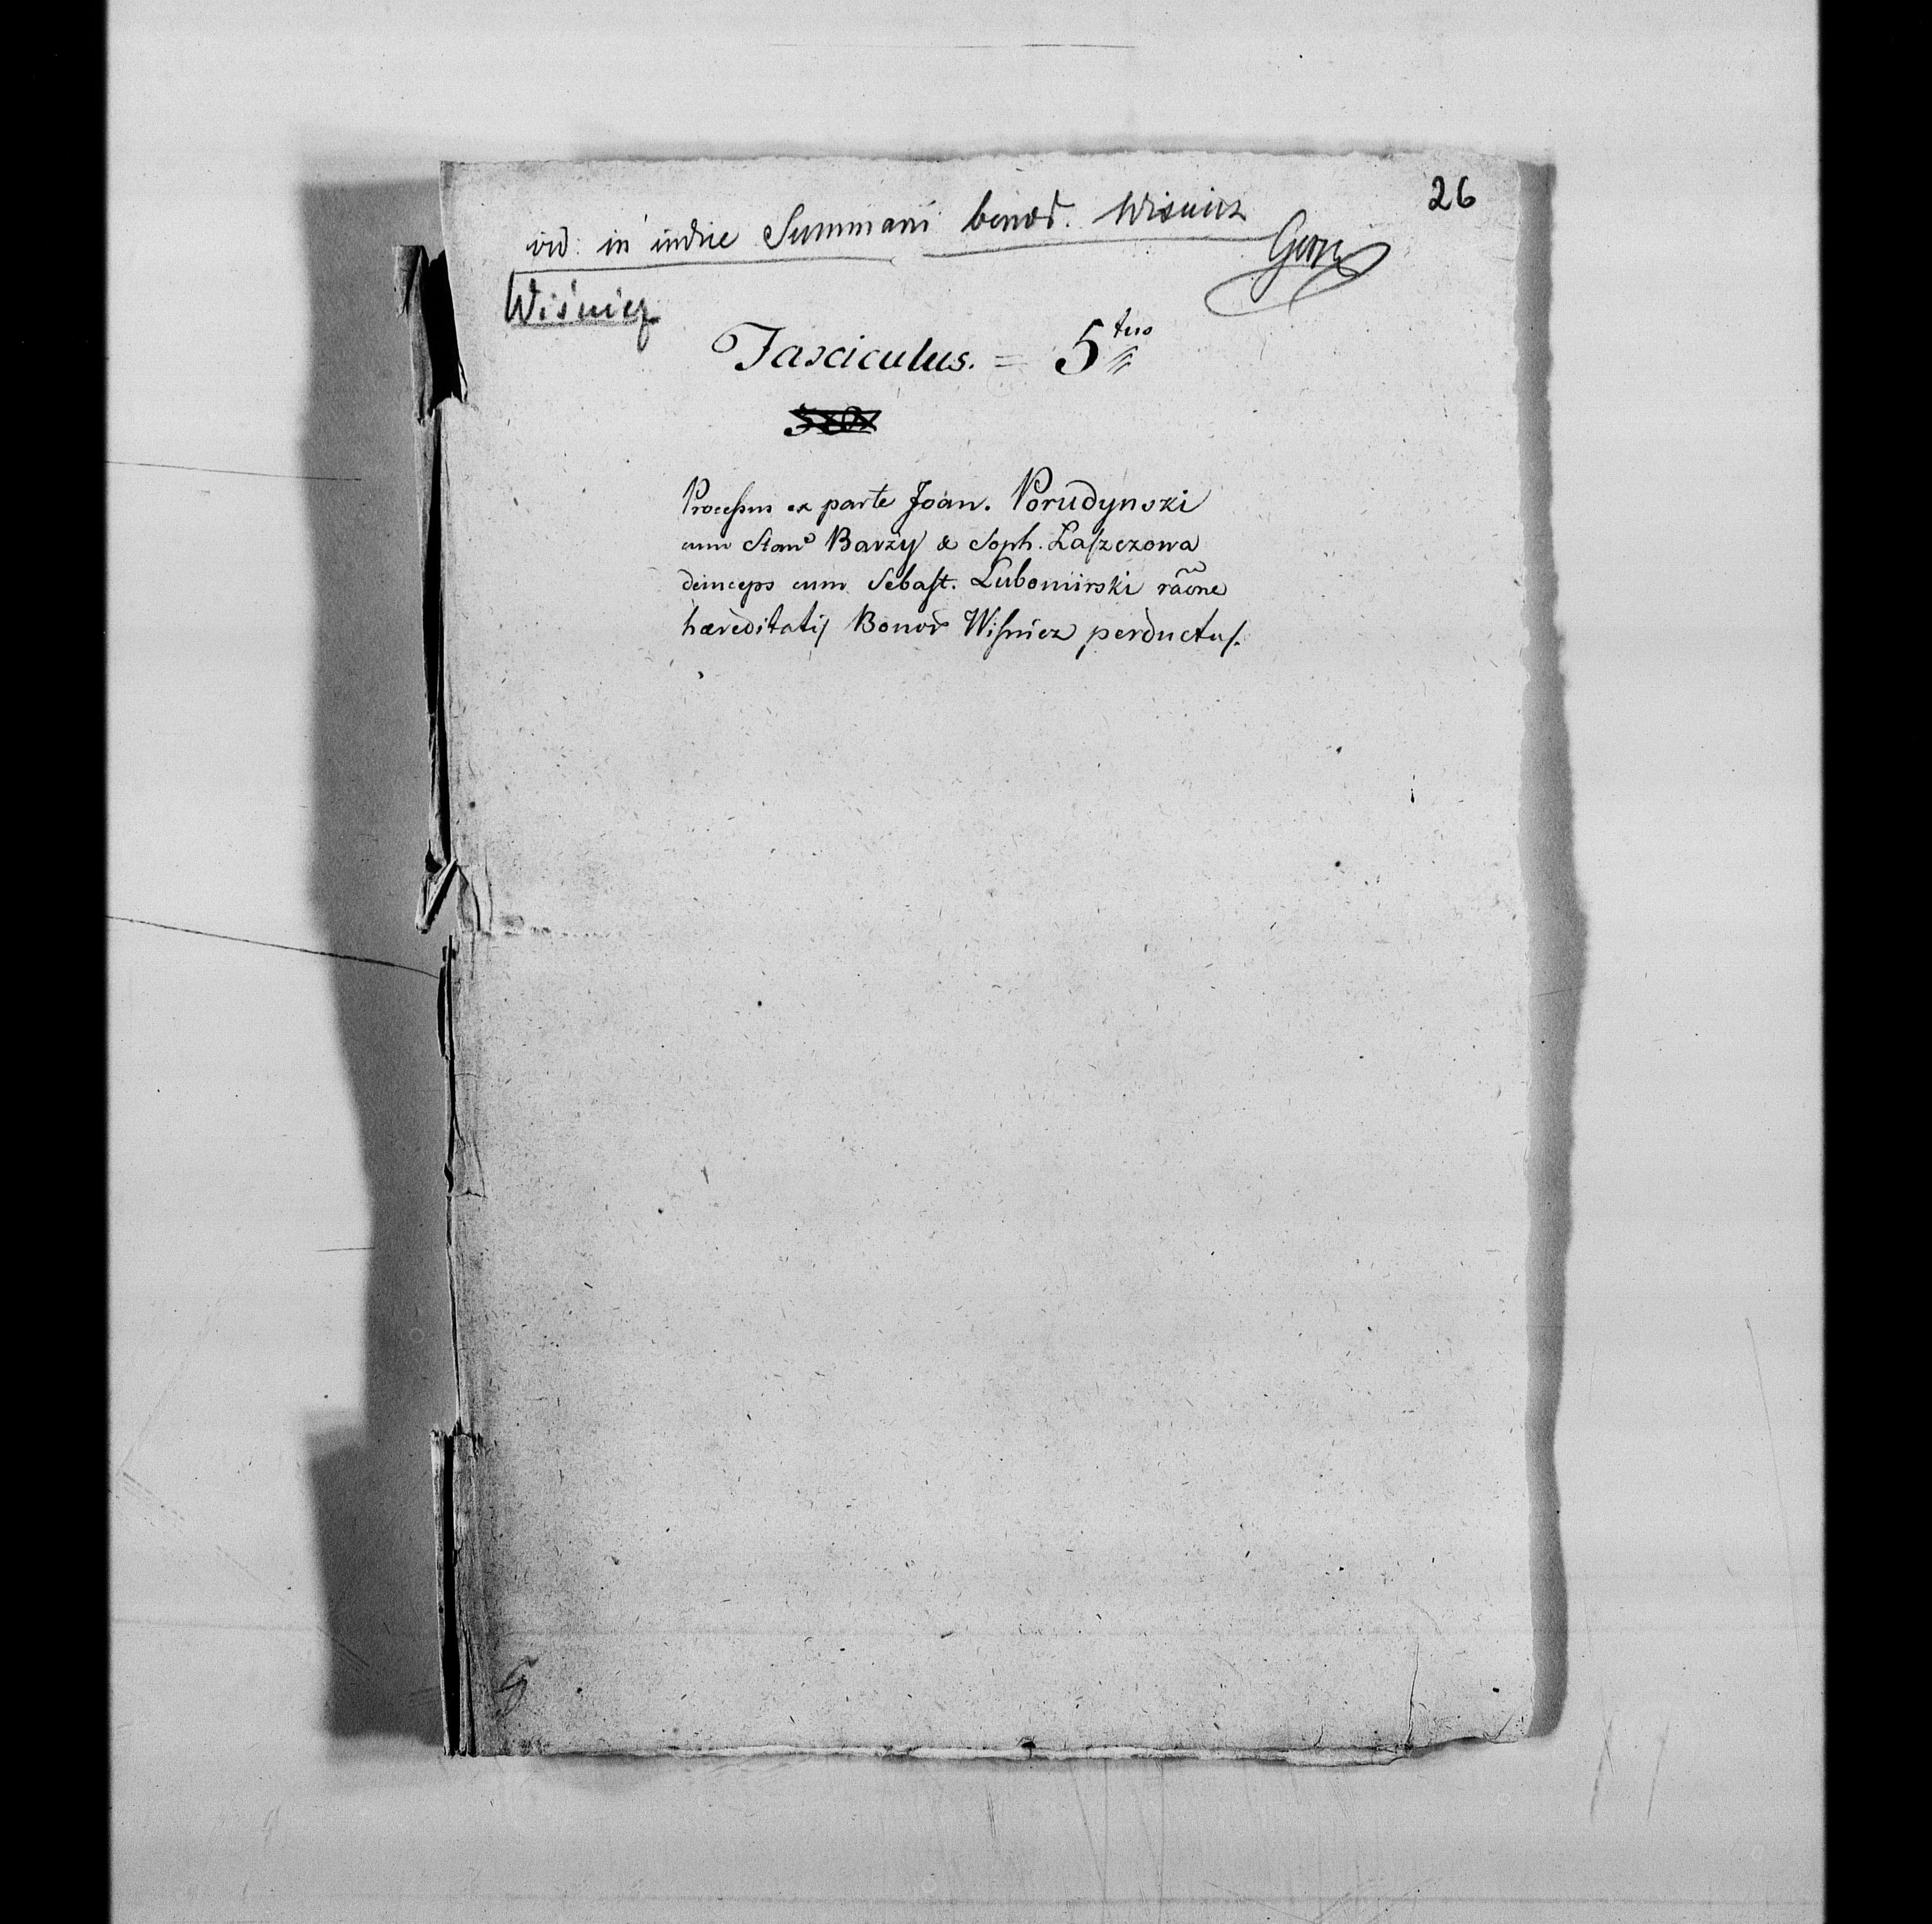 26
vid: in indice Summarii bonor. Wiśnicz
Wiśnicz
Fasciculus. = 5tus
Processus ex parte Joan. Porudynski
cum Stano Barzy & Soph. Łaszczowa
deinceps cum Sebast. Lubomirski raõne
hæreditatis Bonor Wisnicz perductus.
5